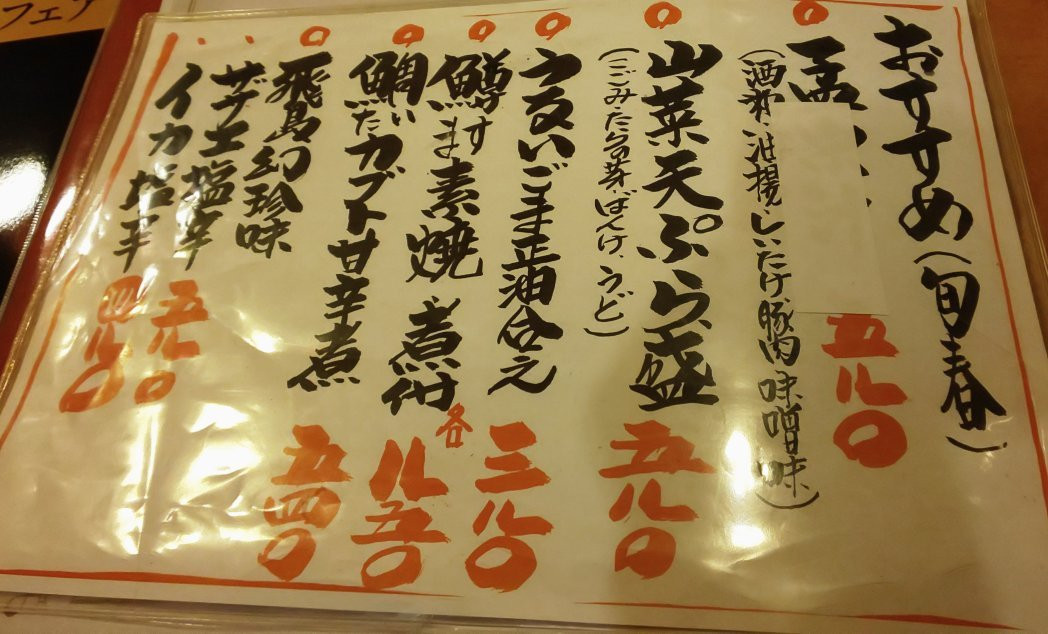 おすすめ(旬春)
孟
五八〇
(酒粕、油揚、しいたけ、豚肉 味噌味)
山菜天ぷら盛
五八〇
(こごみ、たらの芽、ばんけ、うど)
うるいごま正油合え
三八〇
鱒ます素焼 煮付
各
八五〇
鯛たいカブト甘辛煮
五四〇
飛島幻珍味
サザエ塩辛
五八〇
イカ塩辛
四八〇
フェア